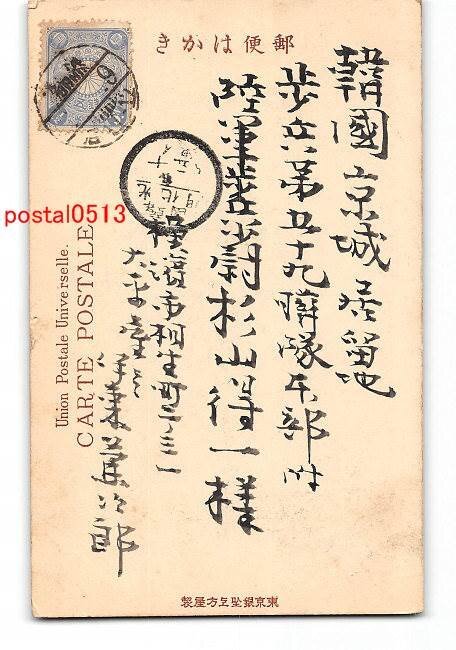 きかはは便郵
韓國京城居留地
歩兵第五十九聯隊本部附
陸軍歩兵少尉杉山得一様
横濱市相生町二ノ三一
伊東
次郎
Union Postale Universelle.
CARTE POSTALE
東京銀座上方屋製
postal0513